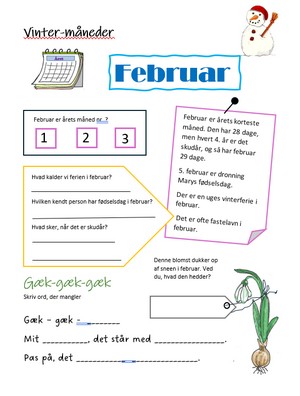 Vinter-måneder
Februar
Februar er årets måned nr. ?
1 2 3
Februar er årets korteste
måned. Den har 28 dage,
men hvert 4. år er det
skudår, og så har februar
29 dage.
5. februar er dronning
Marys fødselsdag.
Der er en uges vinterferie i
februar.
Det er ofte fastelavn i
februar.
Hvad kalder vi ferien i februar?
Hvilken kendt person har fødselsdag i februar?
Hvad sker, når det er skudår?
Denne blomst dukker op
af sneen i februar. Ved
du, hvad den hedder?
Gæk-gæk-gæk
Skriv ord, der mangler
Gæk - gæk - ________
Mit __________, det står med _______________.
Pas på, det _________________________.